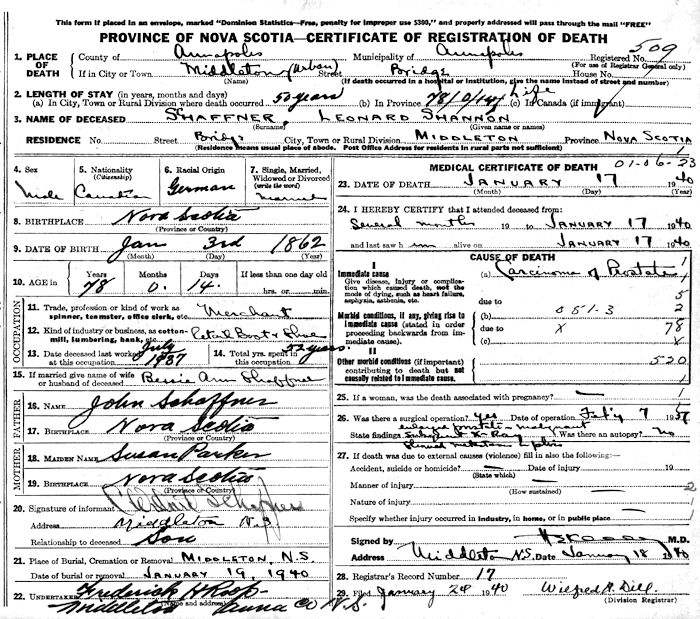 This form if placed in an envelope, marked "Dominion Statistics—Free, penalty for improper use $300," and properly addressed will pass through the mail "FREE"
PROVINCE OF NOVA SCOTIA—CERTIFICATE OF REGISTRATION OF DEATH
509
1. PLACE OF DEATH County of Annapolis Municipality of Annapolis Registered No. (For use of Registrar General only)
If in City or Town Middleton (Urban) Street Bridge House No.
(Name) (If death occurred in a hospital or institution, give the name instead of street and number)
2. LENGTH OF STAY (in years, months and days)
(a) In City, Town or Rural Division where death occurred 50 years (b) In Province 78/0/14 (c) In Canada (if immigrant) Life
3. NAME OF DECEASED SCHAFFNER LEONARD SHANNON
(Surname) (Given name or names)
RESIDENCE No. Street Bridge City, Town or Rural Division MIDDLETON Province NOVA SCOTIA
(Residence means usual place of abode. Post Office Address for residents in rural parts not sufficient)
4. Sex Male
5. Nationality (Citizenship) Canadian
6. Racial Origin German
7. Single, Married, Widowed or Divorced (write the word) Married
8. BIRTHPLACE Nova Scotia
(Province or Country)
9. DATE OF BIRTH Jan 3rd 1862
(Month) (Day) (Year)
10. AGE in Years 78 Months 0 Days 14 If less than one day old hrs. or min.
OCCUPATION
11. Trade, profession or kind of work as spinner, teamster, office clerk, etc. Merchant
12. Kind of industry or business, as cotton-mill, lumbering, bank, etc. Retail Boot & Shoe
13. Date deceased last worked at this occupation July 1937
14. Total yrs. spent in this occupation 52 years
15. If married give name of wife or husband of deceased Bessie Ann Schaffner
FATHER
16. NAME John Schaffner
17. BIRTHPLACE Nova Scotia
(Province or Country)
MOTHER
18. MAIDEN NAME Susan Parker
19. BIRTHPLACE Nova Scotia
(Province or Country)
20. Signature of informant Schaffner
Address Middleton N.S
Relationship to deceased Son
21. Place of Burial, Cremation or Removal MIDDLETON, N.S.
Date of burial or removal JANUARY 19, 1940
22. UNDERTAKER Frederick H Roop
(Name and address)
Middleton Anna Co N.S.
MEDICAL CERTIFICATE OF DEATH
01-06-23
23. DATE OF DEATH JANUARY 17 1940
(Month) (Day) (Year)
24. I HEREBY CERTIFY that I attended deceased from:
Several months 19 to JANUARY 17 1940
and last saw him alive on JANUARY 17 1940
CAUSE OF DEATH
I
Immediate cause
Give disease, injury or complication which caused death, not the mode of dying, such as heart failure, asphyxia, asthenia, etc.
(a) Carcinoma of Prostate
due to
Morbid conditions, if any, giving rise to immediate cause (stated in order proceeding backwards from immediate cause).
(b) 051-3
due to x
(c) x
1
5
2
78
x
II
Other morbid conditions (if important) contributing to death but not causally related to immediate cause.
520
1
25. If a woman, was the death associated with pregnancy? —
26. Was there a surgical operation? Yes Date of operation Feb'y 7 1939
enlarged prostate - malignant
State findings Was there an autopsy? No
27. If death was due to external causes (violence) fill in also the following:—
Accident, suicide or homicide? — Date of injury 19
(State which)
Manner of injury — 2
(How sustained)
Nature of injury —
Specify whether injury occurred in industry, in home, or in public place — 1
Signed by M.D.
Address Middleton N.S. Date January 18 1940
28. Registrar's Record Number 17
29. Filed January 24 1940 Wilfred A. Dill
(Division Registrar)